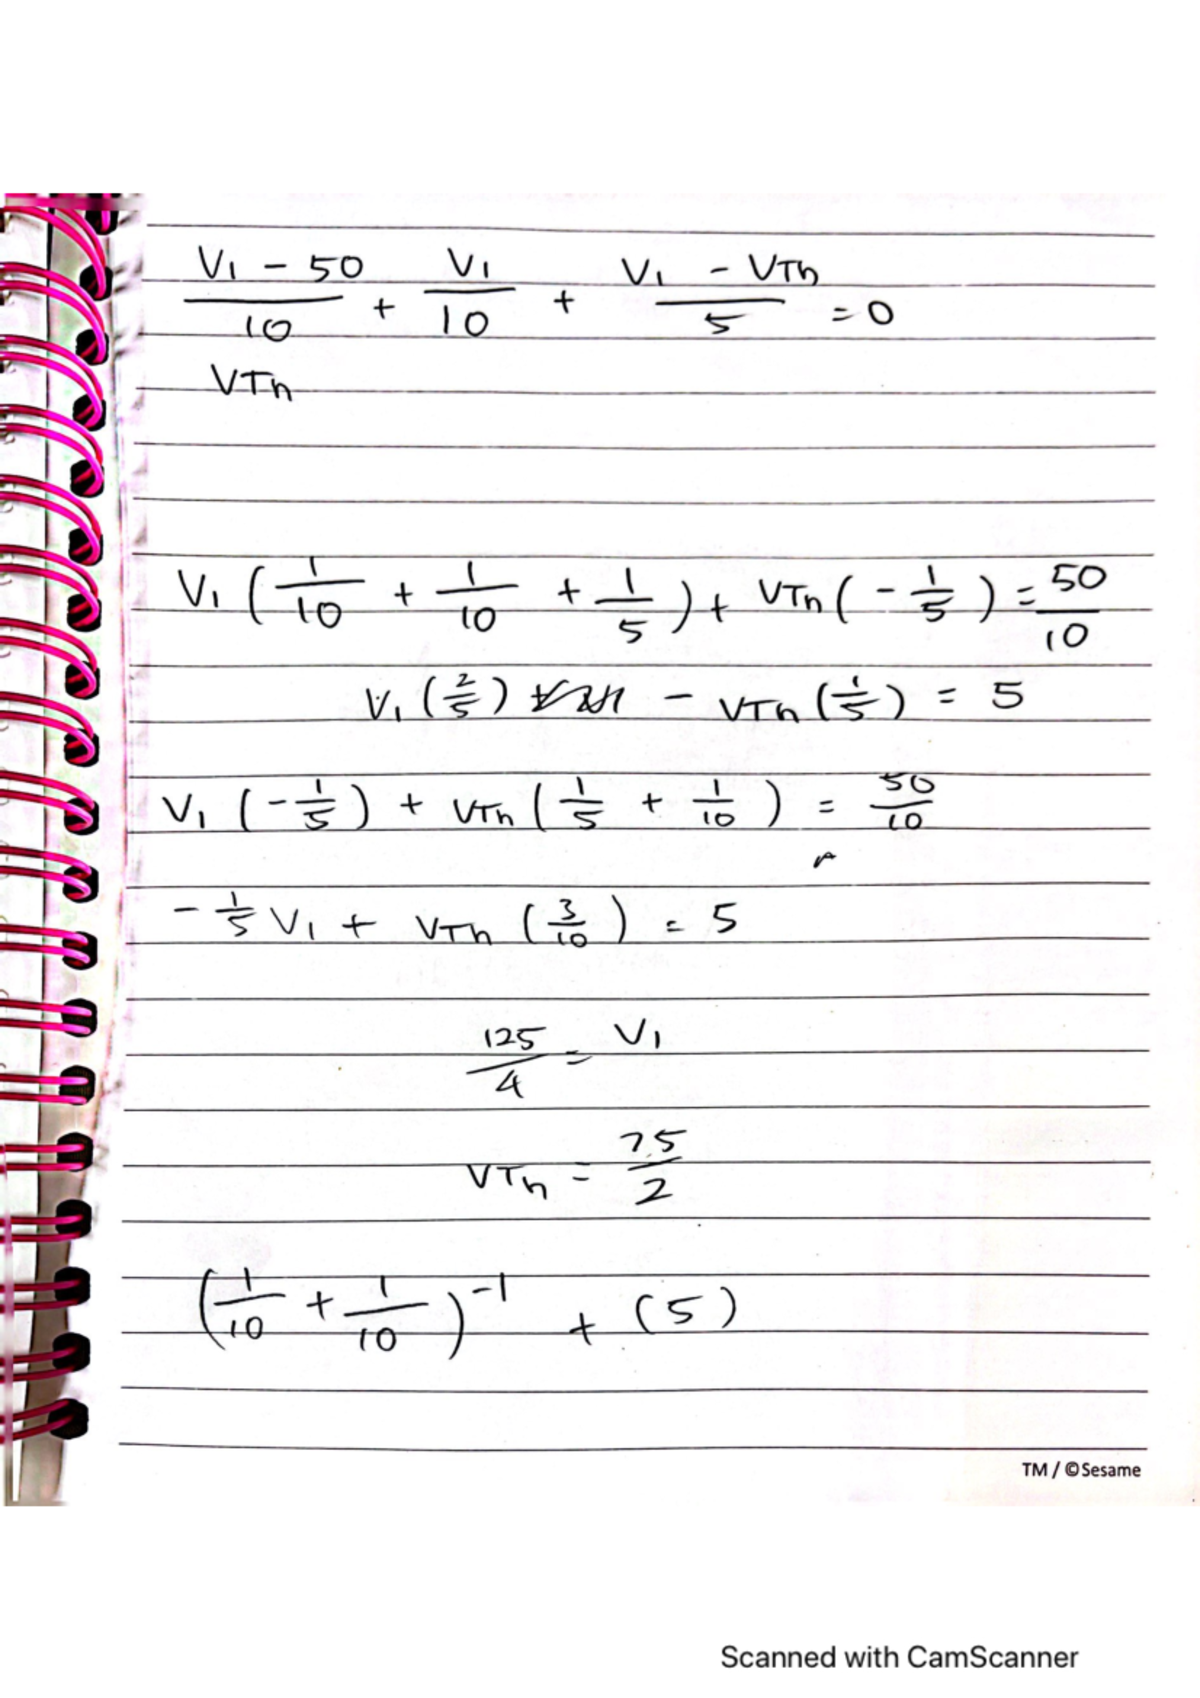 (V1 - 50)/10 + V1/10 + (V1 - VTh)/5 = 0
VTh
V1 (1/10 + 1/10 + 1/5) + VTh (-1/5) = 50/10
V1 (2/5) - VTh (1/5) = 5
V1 (-1/5) + VTh (1/5 + 1/10) = 50/10
-1/5 V1 + VTh (3/10) = 5
125/4 = V1
VTh = 75/2
(1/10 + 1/10)^-1 + (5)
TM / ©Sesame
Scanned with CamScanner